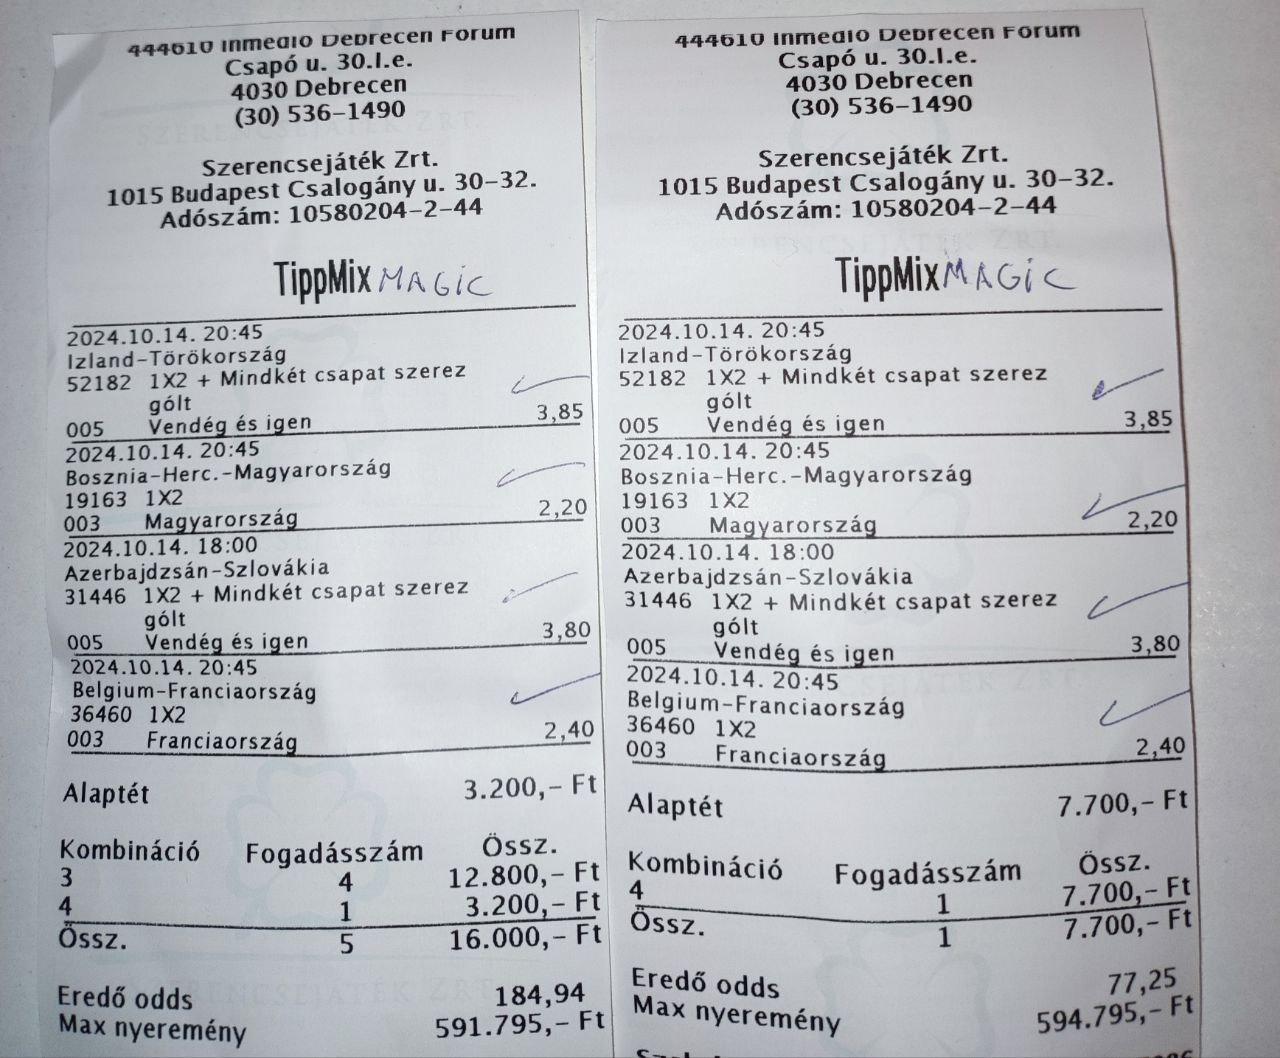 444610 Inmedio Debrecen Fórum
Csapó u. 30.I.e.
4030 Debrecen
(30) 536-1490
Szerencsejáték Zrt.
1015 Budapest Csalogány u. 30-32.
Adószám: 10580204-2-44
TippMix MAGiC
2024.10.14. 20:45
Izland-Törökország
52182 1X2 + Mindkét csapat szerez
gólt
005 Vendég és igen 3,85
2024.10.14. 20:45
Bosznia-Herc.-Magyarország
19163 1X2
003 Magyarország 2,20
2024.10.14. 18:00
Azerbajdzsán-Szlovákia
31446 1X2 + Mindkét csapat szerez
gólt
005 Vendég és igen 3,80
2024.10.14. 20:45
Belgium-Franciaország
36460 1X2
003 Franciaország 2,40
Alaptét 3.200,- Ft
Kombináció Fogadásszám Össz.
3 4 12.800,- Ft
4 1 3.200,- Ft
Össz. 5 16.000,- Ft
Eredő odds 184,94
Max nyeremény 591.795,- Ft
444610 Inmedio Debrecen Fórum
Csapó u. 30.I.e.
4030 Debrecen
(30) 536-1490
Szerencsejáték Zrt.
1015 Budapest Csalogány u. 30-32.
Adószám: 10580204-2-44
TippMix MAGiC
2024.10.14. 20:45
Izland-Törökország
52182 1X2 + Mindkét csapat szerez
gólt
005 Vendég és igen 3,85
2024.10.14. 20:45
Bosznia-Herc.-Magyarország
19163 1X2
003 Magyarország 2,20
2024.10.14. 18:00
Azerbajdzsán-Szlovákia
31446 1X2 + Mindkét csapat szerez
gólt
005 Vendég és igen 3,80
2024.10.14. 20:45
Belgium-Franciaország
36460 1X2
003 Franciaország 2,40
Alaptét 7.700,- Ft
Kombináció Fogadásszám Össz.
4 1 7.700,- Ft
Össz. 1 7.700,- Ft
Eredő odds 77,25
Max nyeremény 594.795,- Ft